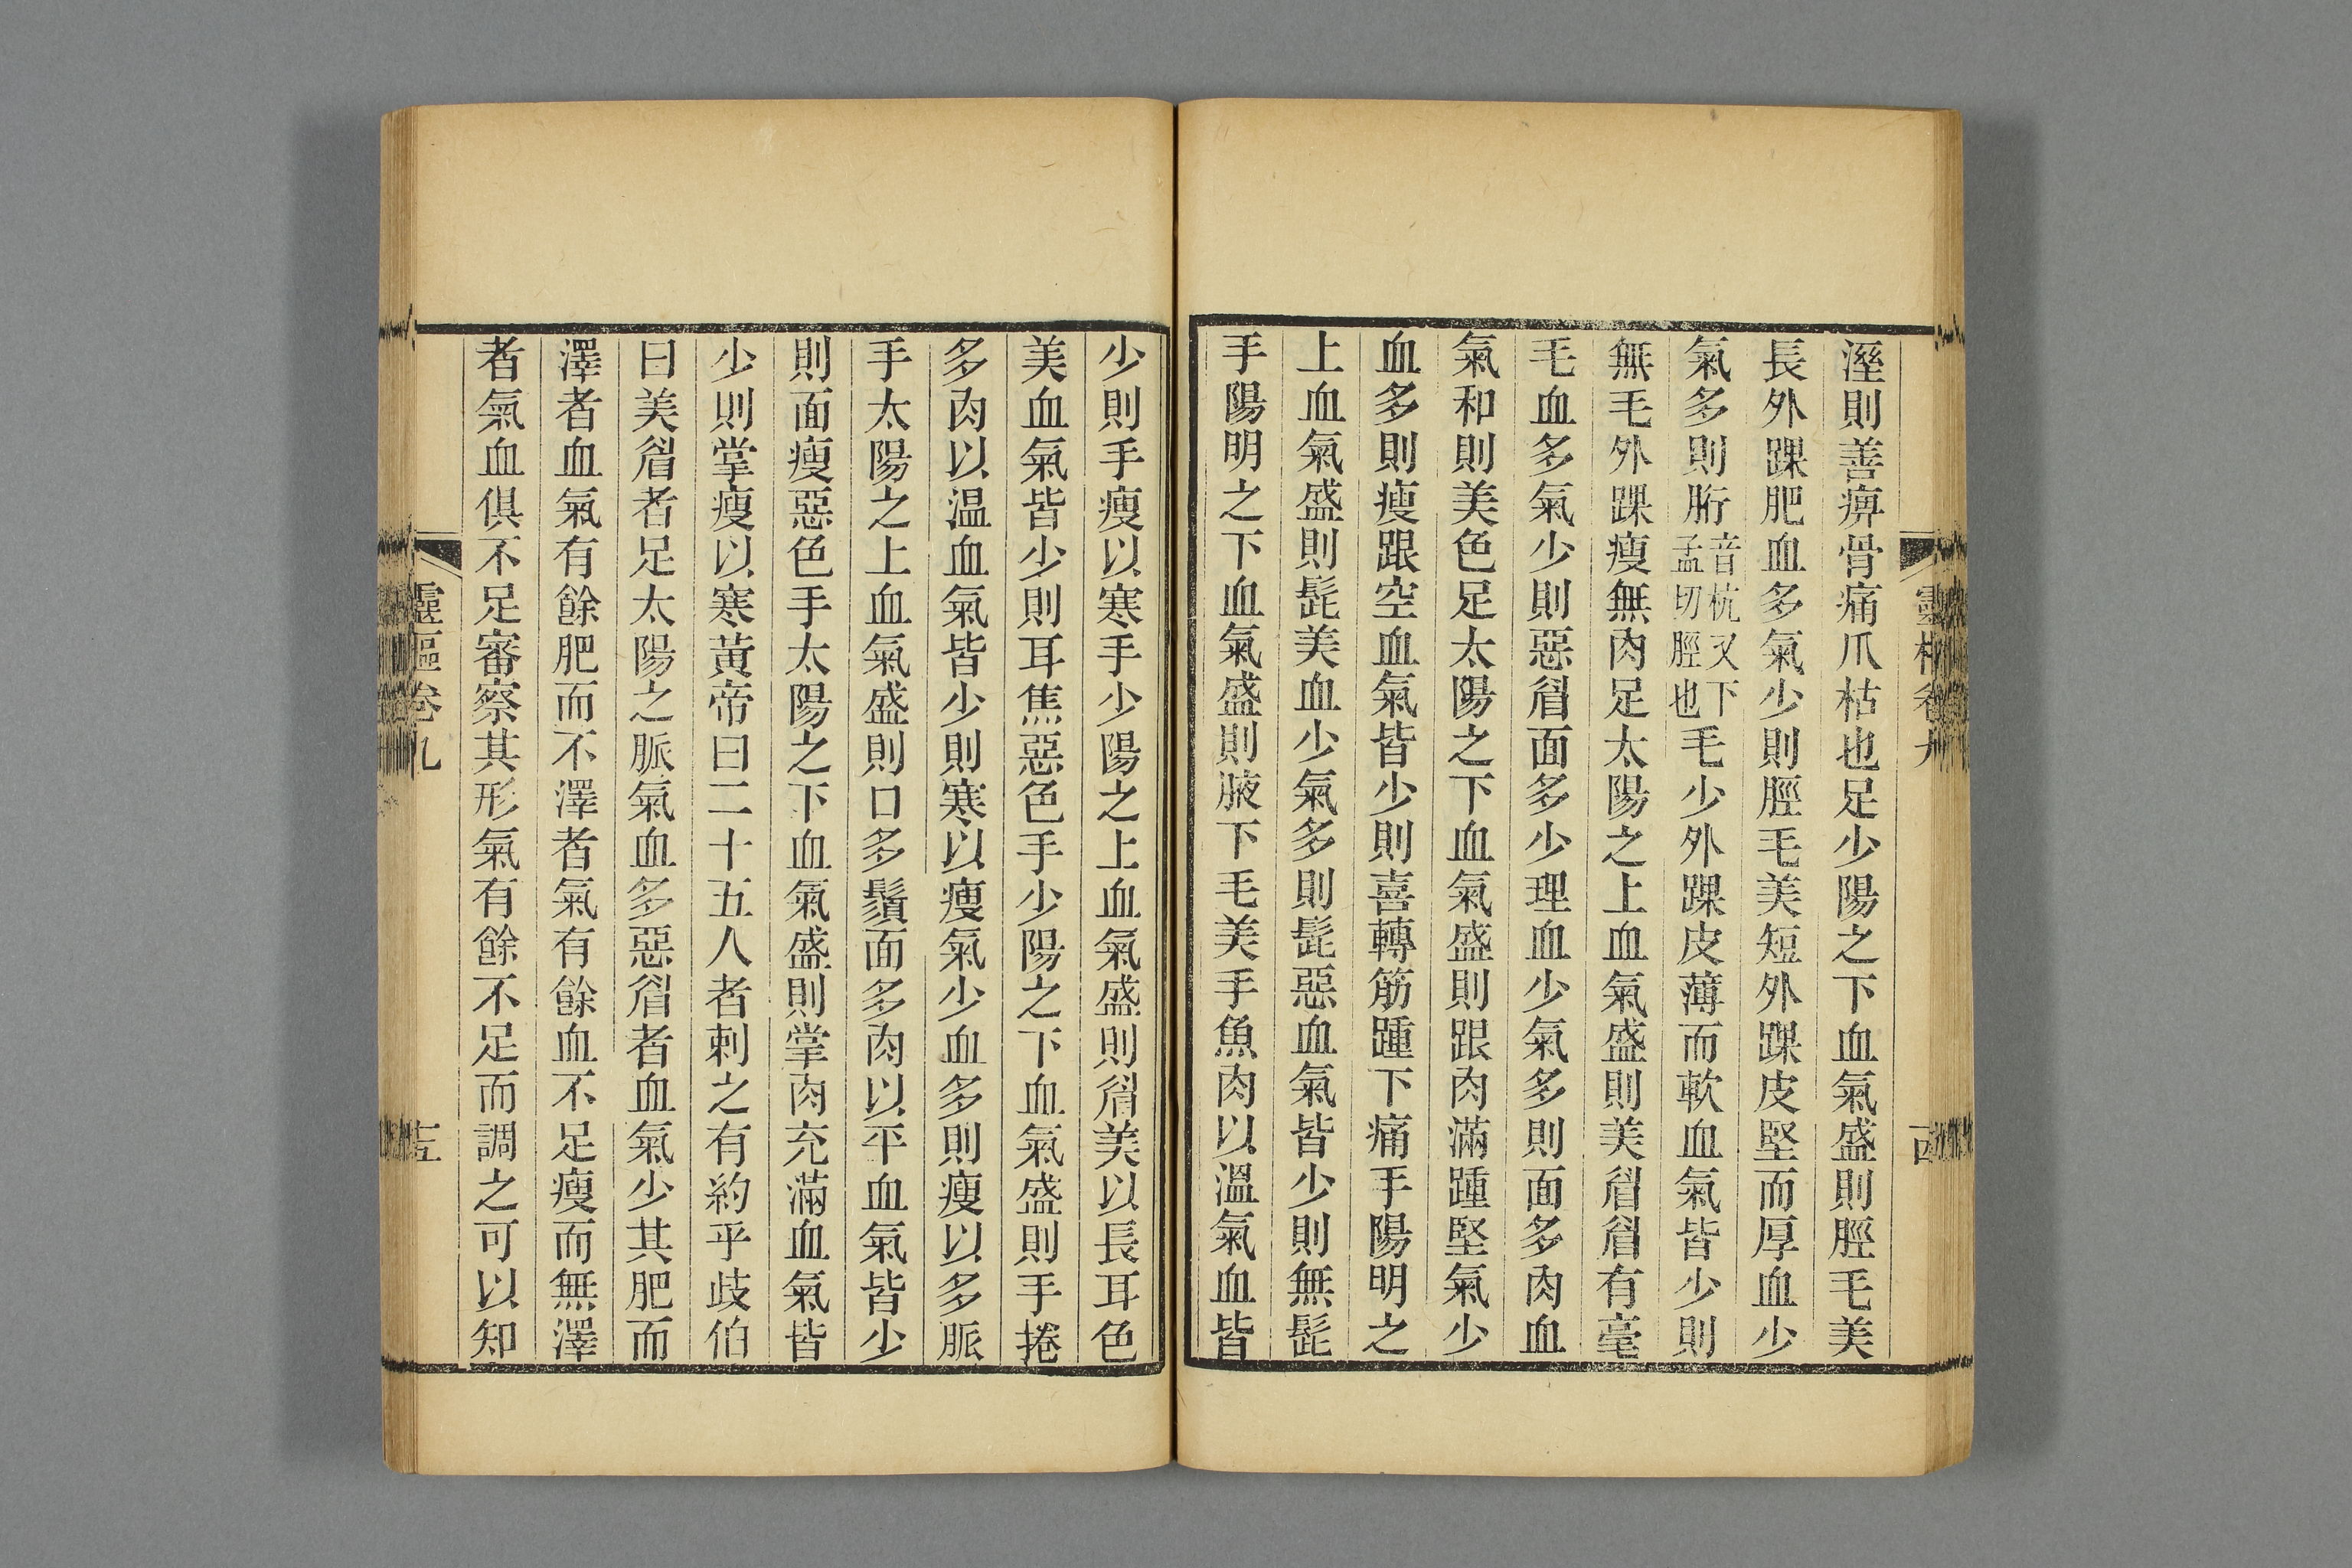 溼則善痹骨痛爪枯也足少陽之下血氣盛則脛毛美
長外踝肥血多氣少則脛毛美短外踝皮堅而厚血少
氣多則胻音杭又下孟切脛也毛少外踝皮薄而軟血氣皆少則
無毛外踝瘦無肉足太陽之上血氣盛則美眉眉有毫
毛血多氣少則惡眉面多少理血少氣多則面多肉血
氣和則美色足太陽之下血氣盛則跟肉滿踵堅氣少
血多則瘦跟空血氣皆少則喜轉筋踵下痛手陽明之
上血氣盛則髭美血少氣多則髭惡血氣皆少則無髭
手陽明之下血氣盛則腋下毛美手魚肉以溫氣血皆
少則手瘦以寒手少陽之上血氣盛則眉美以長耳色
美血氣皆少則耳焦惡色手少陽之下血氣盛則手捲
多肉以温血氣皆少則寒以瘦氣少血多則瘦以多脈
手太陽之上血氣盛則口多鬚面多肉以平血氣皆少
則面瘦惡色手太陽之下血氣盛則掌肉充滿血氣皆
少則掌瘦以寒黃帝曰二十五人者刺之有約乎歧伯
曰美眉者足太陽之脈氣血多惡眉者血氣少其肥而
澤者血氣有餘肥而不澤者氣有餘血不足瘦而無澤
者氣血俱不足審察其形氣有餘不足而調之可以知
靈樞卷九